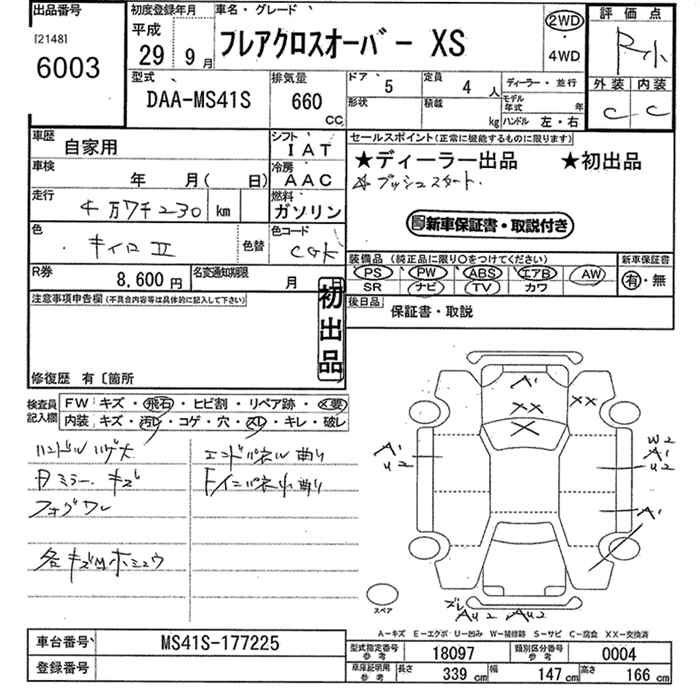 出品番号
[2148]
6003
初度登録年月
平成
29 9月
車名・グレード
フレアクロスオーバー XS
2WD
・
4WD
評価点
R小
外装 内装
C C
型式
DAA-MS41S
排気量
660
CC
ドア 5
形状
定員 4人
積載 kg
ディーラー・並行
モデル年式 年
ハンドル 左・右
車歴 自家用
シフト IAT
車検 年 月( 日)
冷房 AAC
走行 4万7千230 km
燃料 ガソリン
色 キイロII
色替
色コード C9K
R券 8,600円
名変通知期限 月
セールスポイント(正常に機能するものに限ります)
★ディーラー出品 ★初出品
☆プッシュスタート.
新車保証書・取説付き
装備品(純正品に限り○をつけてください)
PS PW ABS エアB AW
SR ナビ TV カワ
新車保証書
有・無
後日品
保証書・取説
注意事項申告欄(不具合内容等は具体的に記入して下さい)
初出品
修復歴 有〔箇所
検査員記入欄
FW: キズ・飛石・ヒビ割・リペア跡・×要
内装: キズ・汚レ・コゲ・穴・スレ・キレ・破レ
ハンドルハゲ大
エンドパネル曲り
ミラーキズ
Fインパネル曲り
フォグワレ
各キズ
A'
XX
XX
X
A'
U2
W2
A'
U2
A'
ズレ
AU2 AU2
スペア
A-キズ E-エクボ U-凹み W-補修跡 S-サビ C-腐食 XX-交換済
車台番号 MS41S-177225
登録番号
型式指定番号 参考 18097
類別区分番号 参考 0004
車庫証明用 参考 長さ 339cm 幅 147cm 高さ 166cm